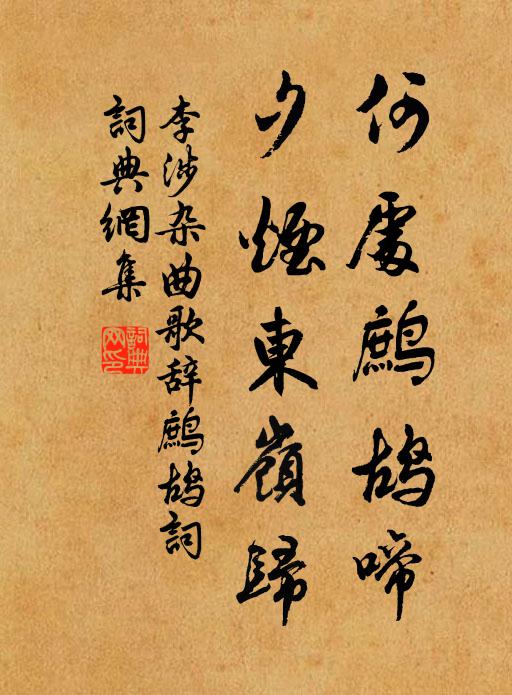 何處鷓鴣啼
夕煙東嶺歸
李涉杂曲歌辞鷓鴣詞
詞典網集
詞典
網印